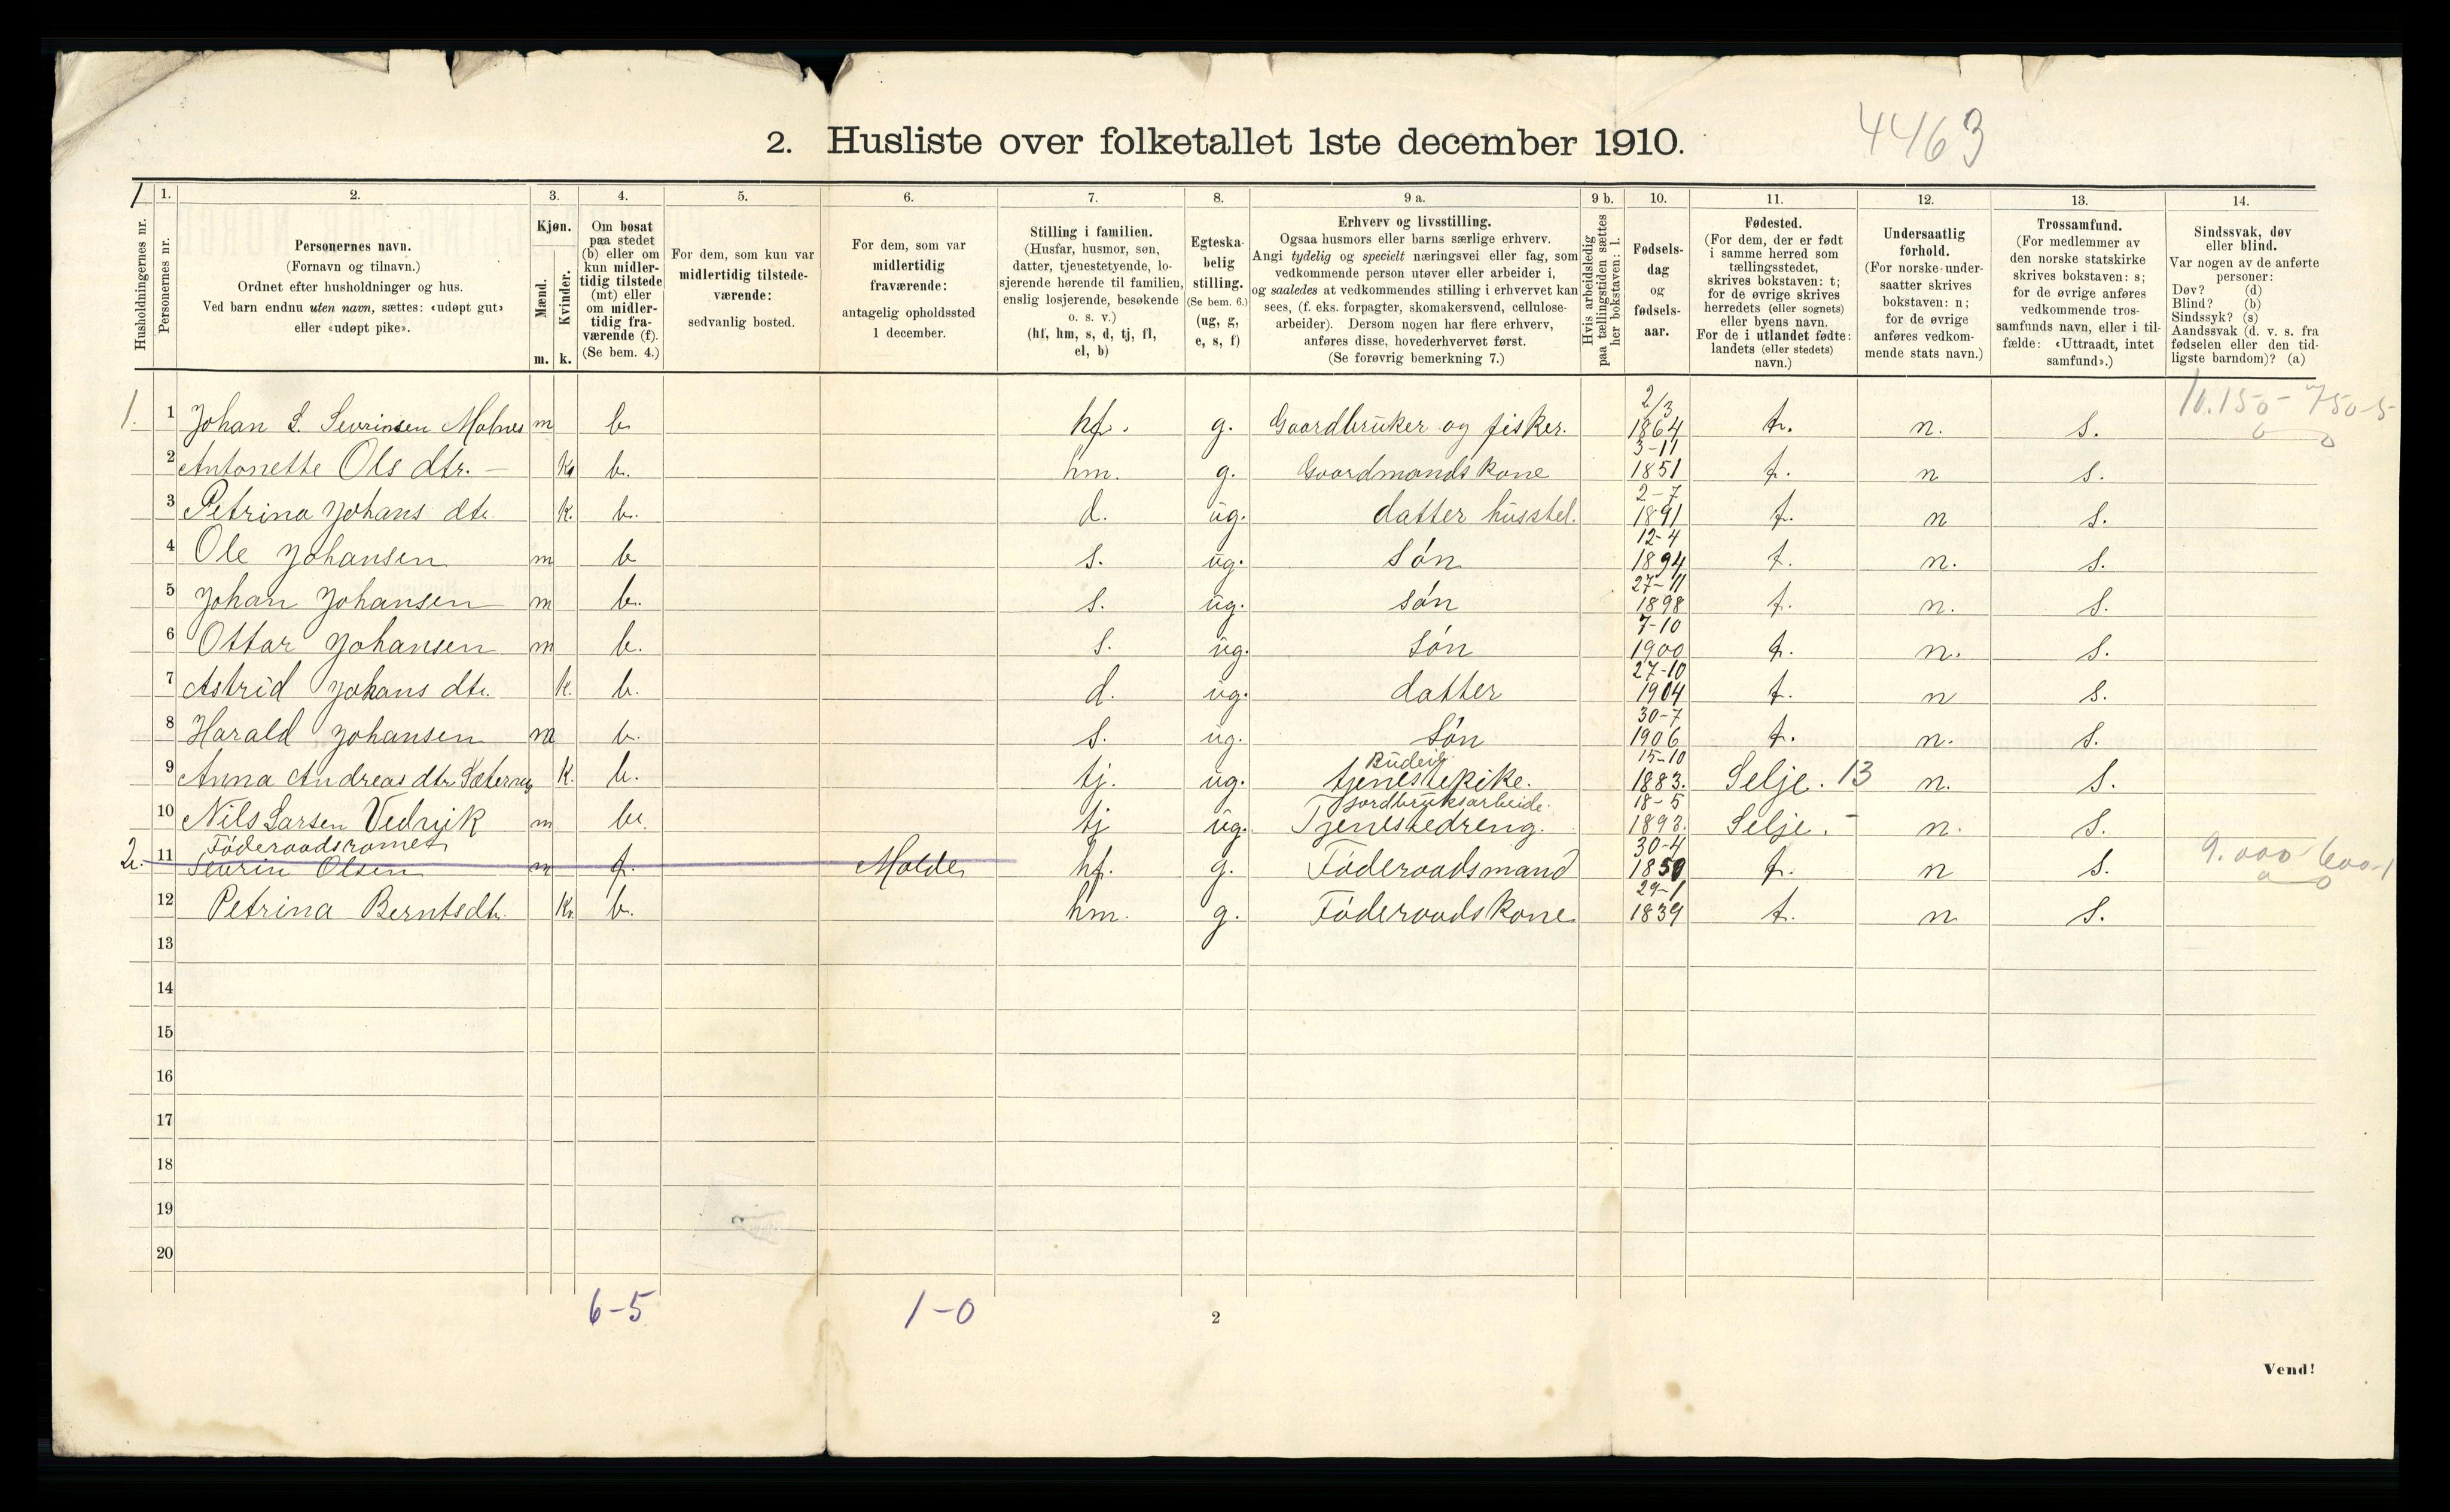 2. Husliste over folketallet 1ste december 1910.
4463
1
Husholdningernes nr.
1.
Personernes nr.
2.
Personernes navn.
(Fornavn og tilnavn.)
Ordnet efter husholdninger og hus.
Ved barn endnu uten navn, sættes: «udøpt gut»
eller «udøpt pike».
3.
Kjøn.
Mænd.
Kvinder.
m. k.
4.
Om bosat
paa stedet
(b) eller om
kun midler-
tidig tilstede
(mt) eller
om midler-
tidig fra-
værende (f).
(Se bem. 4.)
5.
For dem, som kun var
midlertidig tilstede-
værende:
sedvanlig bosted.
6.
For dem, som var
midlertidig
fraværende:
antagelig opholdssted
1 december.
7.
Stilling i familien.
(Husfar, husmor, søn,
datter, tjenestetyende, lo-
sjerende hørende til familien,
enslig losjerende, besøkende
o. s. v.)
(hf, hm, s, d, tj, fl,
el, b)
8.
Egteska-
belig
stilling.
(Se bem. 6.)
(ug, g,
e, s, f)
9 a.
Erhverv og livsstilling.
Ogsaa husmors eller barns særlige erhverv.
Angi tydelig og specielt næringsvei eller fag, som
vedkommende person utøver eller arbeider i,
og saaledes at vedkommendes stilling i erhvervet kan
sees, (f. eks. forpagter, skomakersvend, cellulose-
arbeider). Dersom nogen har flere erhverv,
anføres disse, hovederhvervet først.
(Se forøvrig bemerkning 7.)
9 b.
Hvis arbeidsledig
paa tællingstiden sættes
her bokstaven: l.
10.
Fødsels-
dag
og
fødsels-
aar.
11.
Fødested.
(For dem, der er født
i samme herred som
tællingsstedet,
skrives bokstaven: t;
for de øvrige skrives
herredets (eller sognets)
eller byens navn.
For de i utlandet fødte:
landets (eller stedets)
navn.)
12.
Undersaatlig
forhold.
(For norske under-
saatter skrives
bokstaven: n;
for de øvrige
anføres vedkom-
mende stats navn.)
13.
Trossamfund.
(For medlemmer av
den norske statskirke
skrives bokstaven: s;
for de øvrige anføres
vedkommende tros-
samfunds navn, eller i til-
fælde: «Uttraadt, intet
samfund».)
14.
Sindssvak, døv
eller blind.
Var nogen av de anførte
personer:
Døv? (d)
Blind? (b)
Sindssyk? (s)
Aandssvak (d. v. s. fra
fødselen eller den tid-
ligste barndom)? (a)
1. 1 Johan S. Sevrinsen Molnes m b hf. g. Gaardbruker og fisker. 2/3 1864 t. n. s. 10.150 - 750-5
2 Antonette Ols dtr. — k b. hm. g. Gaardmands kone 3-11 1851 t. n s.
3 Petrina Johans dtr. k. b. d. ug. datter husstel. 2-7 1891 t. n s.
4 Ole Johansen m b s. ug. søn 12-4 1894 t. n. s.
5 Johan Johansen m b. s. ug. søn 27-11 1898 t. n. s.
6 Ottar Johansen m b. s. ug. søn 7-10 1900 t. n. s.
7 Astrid Johans dtr. k. b. d. ug. datter 27-10 1904 t. n s.
8 Harald Johansen m b. s. ug. søn 30-7 1906 t. n. s.
9 Anna Andreas dtr. k. b. tj. ug. Budeig tjenestepike. 15-10 1883. Selje. 13 n. s.
10 Nils Larsen Vedvik m b. tj ug. Jordbruksarbeide. Tjenestedreng. 18-5 1893. Selje. - n. s.
Föderaadsromet
2. 11 Sevrin Olsen m f. Molde hf. g. Föderaadsmand 30-4 1850 t. n s. 9.000 600-1
12 Petrina Berntsdtr. k. b. hm. g. Föderaadskone 29-1 1839 t. n s.
13
14
15
16
17
18
19
20
6-5 1-0
2
Vend!